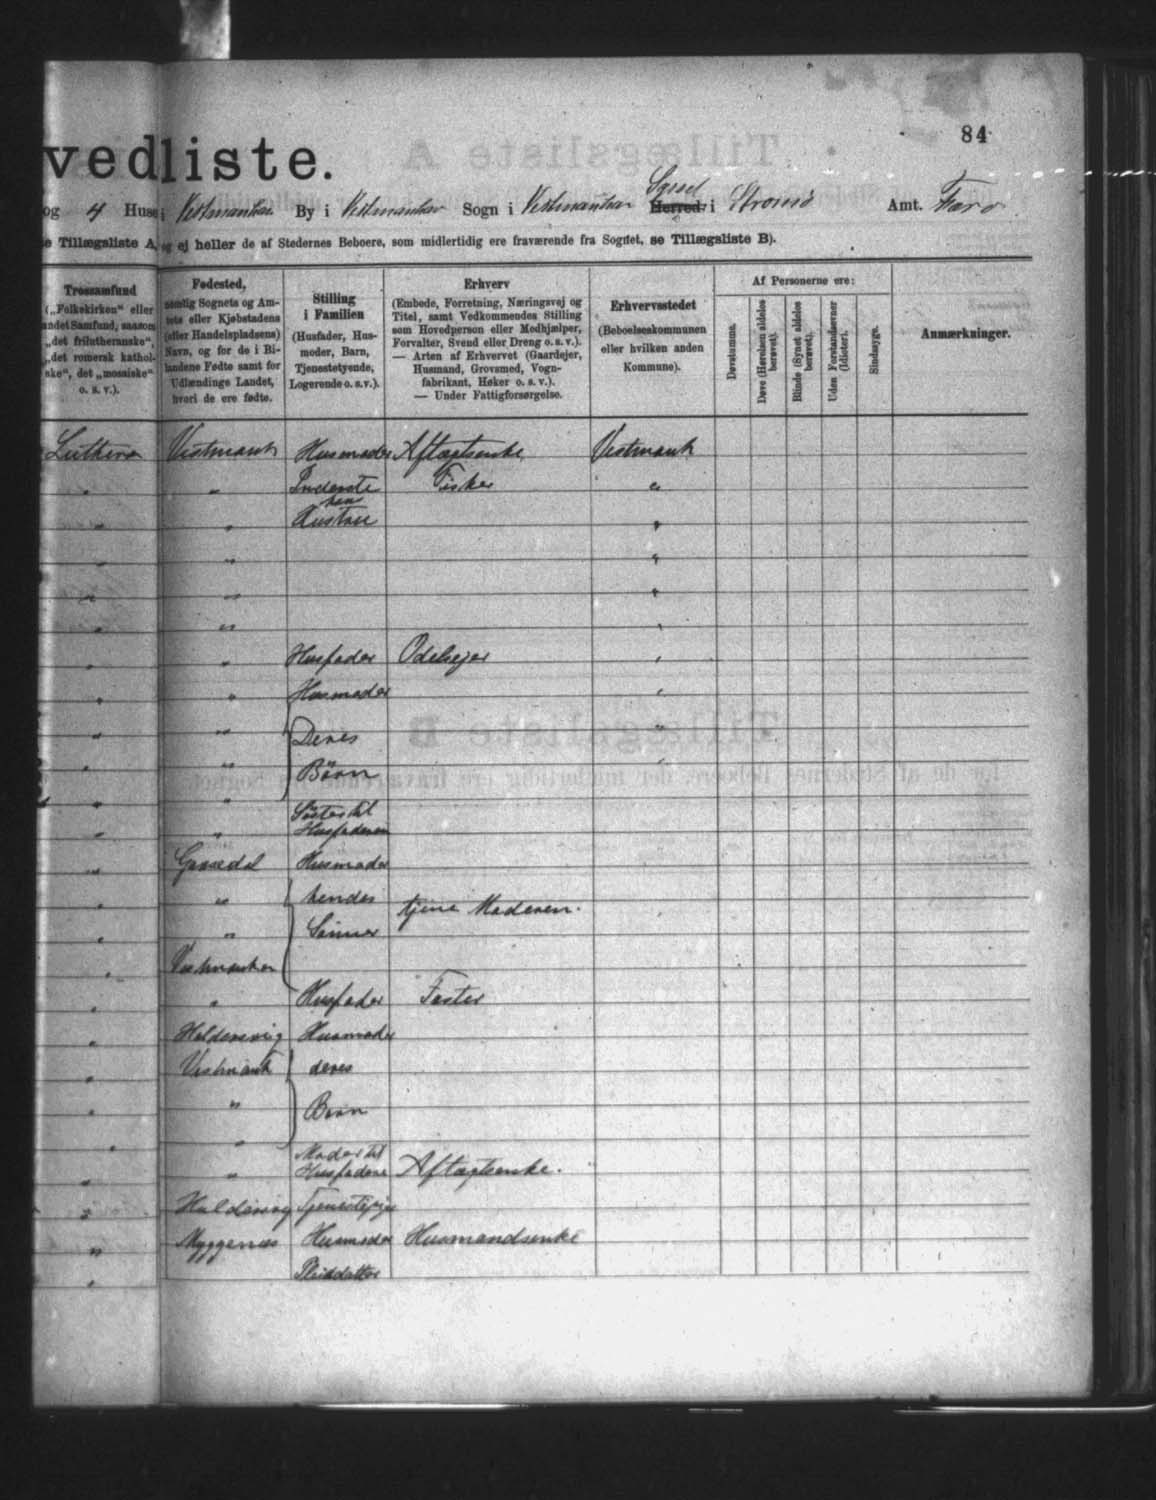 84
vedliste.
og 4 Huse i Vestmanhav By i Vestmanhav Sogn i Vestmanhav Syssel Herred i Strømø Amt. Færø
e Tillægsliste A, og ej heller de af Stedernes Beboere, som midlertidig ere fraværende fra Sognet, se Tillægsliste B).
Trossamfund
(„Folkekirken“ eller
andet Samfund, saasom
„det frilutheranske“,
„det romersk kathol-
ske“, det „mosaiske“
o. s. v.).
Fødested,
nemlig Sognets og Am-
tets eller Kjøbstadens
(eller Handelspladsens)
Navn, og for de i Bi-
landene Fødte samt for
Udlændinge Landet,
hvori de ere fødte.
Stilling
i Familien
(Husfader, Hus-
moder, Barn,
Tjenestetyende,
Logerende o. s. v.).
Erhverv
(Embede, Forretning, Næringsvej og
Titel, samt Vedkommendes Stilling
som Hovedperson eller Medhjælper,
Forvalter, Svend eller Dreng o. s. v.).
— Arten af Erhvervet (Gaardejer,
Husmand, Grovsmed, Vogn-
fabrikant, Høker o. s. v.).
— Under Fattigforsørgelse.
Erhvervsstedet
(Beboelseskommunen
eller hvilken anden
Kommune).
Af Personerne ere:
Døvstumme.
Døve (Hørelsen aldeles
berøvet).
Blinde (Synet aldeles
berøvet).
Uden Forstandsevner
(Idioter).
Sindssyge.
Anmærkninger.
Luthera Vestmanh Husmoder Aftægtsenke Vestmanh
" " Inderste Fisker "
" " hans Hustru "
" " "
" " "
" " "
" " Husfader Odelsejer "
" " Husmoder "
" " Deres "
" " Børn "
" "
" " Søster til Husfaderen
" Gaasedal Husmoder
" " hendes tjene Moderen.
" " Sønner
" Vestmanhav
" " Husfader Fæster
" Haldersvig Husmoder
" Vestmanh deres
" " Børn
" "
" " Moder til Husfadere Aftægtsenke.
" Haldersvig Tjenestepige
" Myggenæs Husmoder Husmandsenke
" Pleiedatter